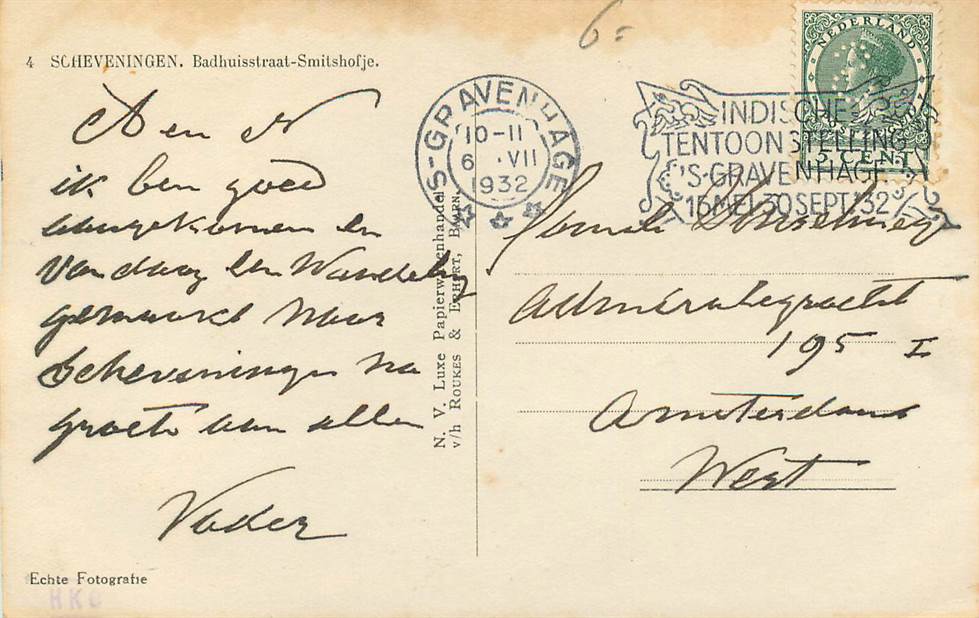 6=
4 SCHEVENINGEN. Badhuisstraat-Smitshofje.
'S-GRAVENHAGE
10-11
6 .VII
1932
INDISCHE
TENTOONSTELLING
'S-GRAVENHAGE
16MEI-30SEPT.'32
NEDERLAND
5 CENT
A en N
ik ben goed
aangekomen en
vandaag een Wandeling
gemaakt naar
Scheveningen na
groete aan allen
Vader
N. V. Luxe Papierwarenhandel
v/h ROUKES & ERHART, BAARN.
Familie
Admiralegracht
195 I
Amsterdam
West
Echte Fotografie
HKC